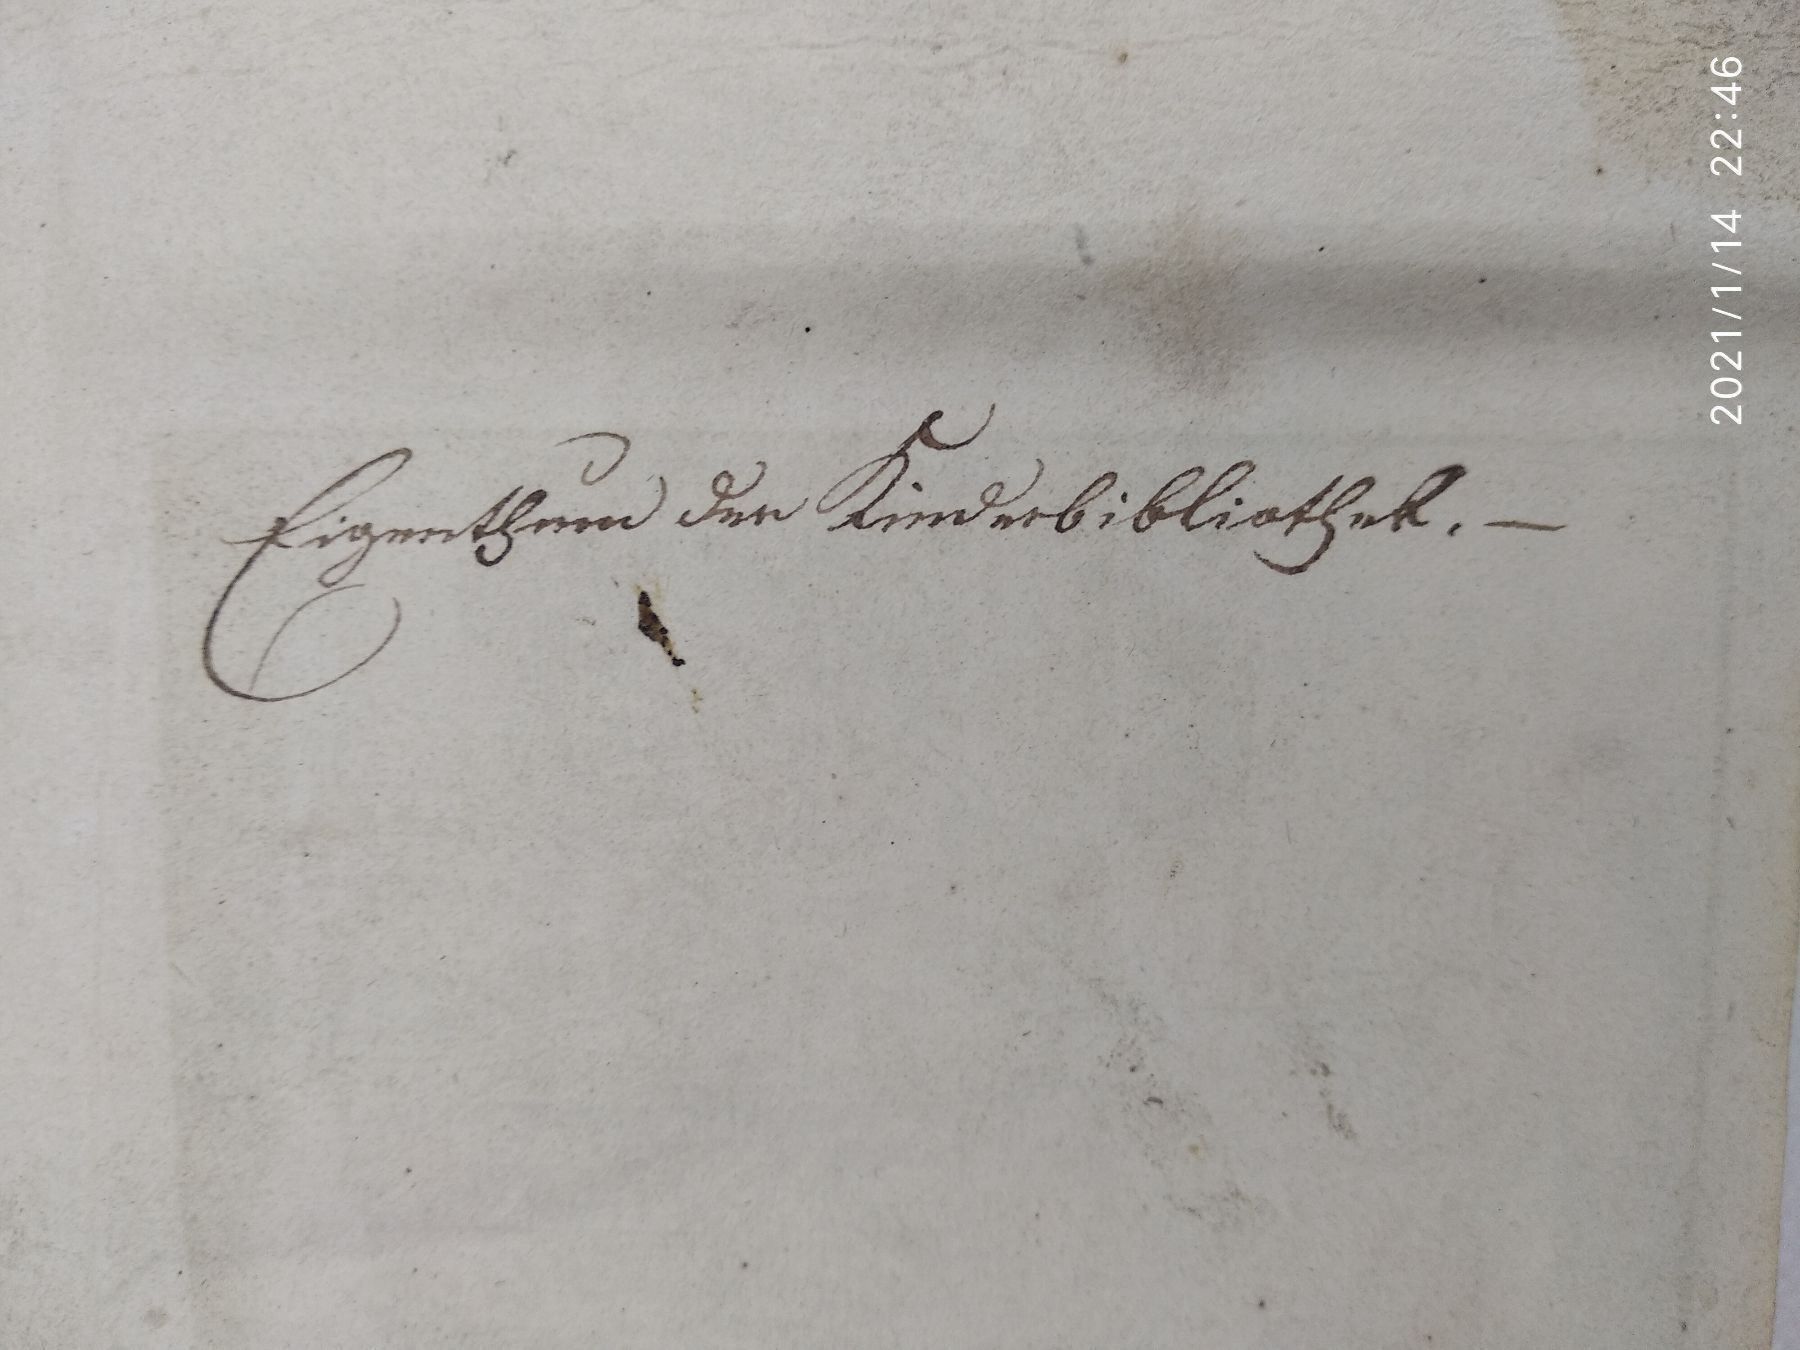 Eigenthum der Kinderbibliothek. —
2021/1/14 22:46